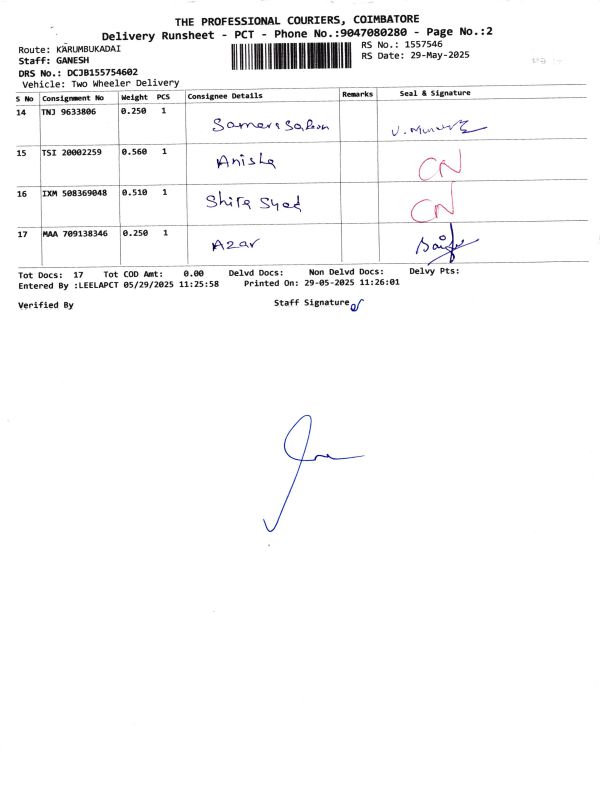 THE PROFESSIONAL COURIERS, COIMBATORE
Delivery Runsheet - PCT - Phone No.:9047080280 - Page No.:2
Route: KARUMBUKADAI RS No.: 1557546
Staff: GANESH RS Date: 29-May-2025
DRS No.: DCJB155754602
Vehicle: Two Wheeler Delivery
S No Consignment No Weight PCS Consignee Details Remarks Seal & Signature
14 TNJ 9633806 0.250 1
15 TSI 20002259 0.560 1 Anisha CN
16 IXM 508369048 0.510 1 Shifa Syed CN
17 MAA 709138346 0.250 1 Azar
Tot Docs: 17 Tot COD Amt: 0.00 Delvd Docs: Non Delvd Docs: Delvy Pts:
Entered By :LEELAPCT 05/29/2025 11:25:58 Printed On: 29-05-2025 11:26:01
Verified By Staff Signature